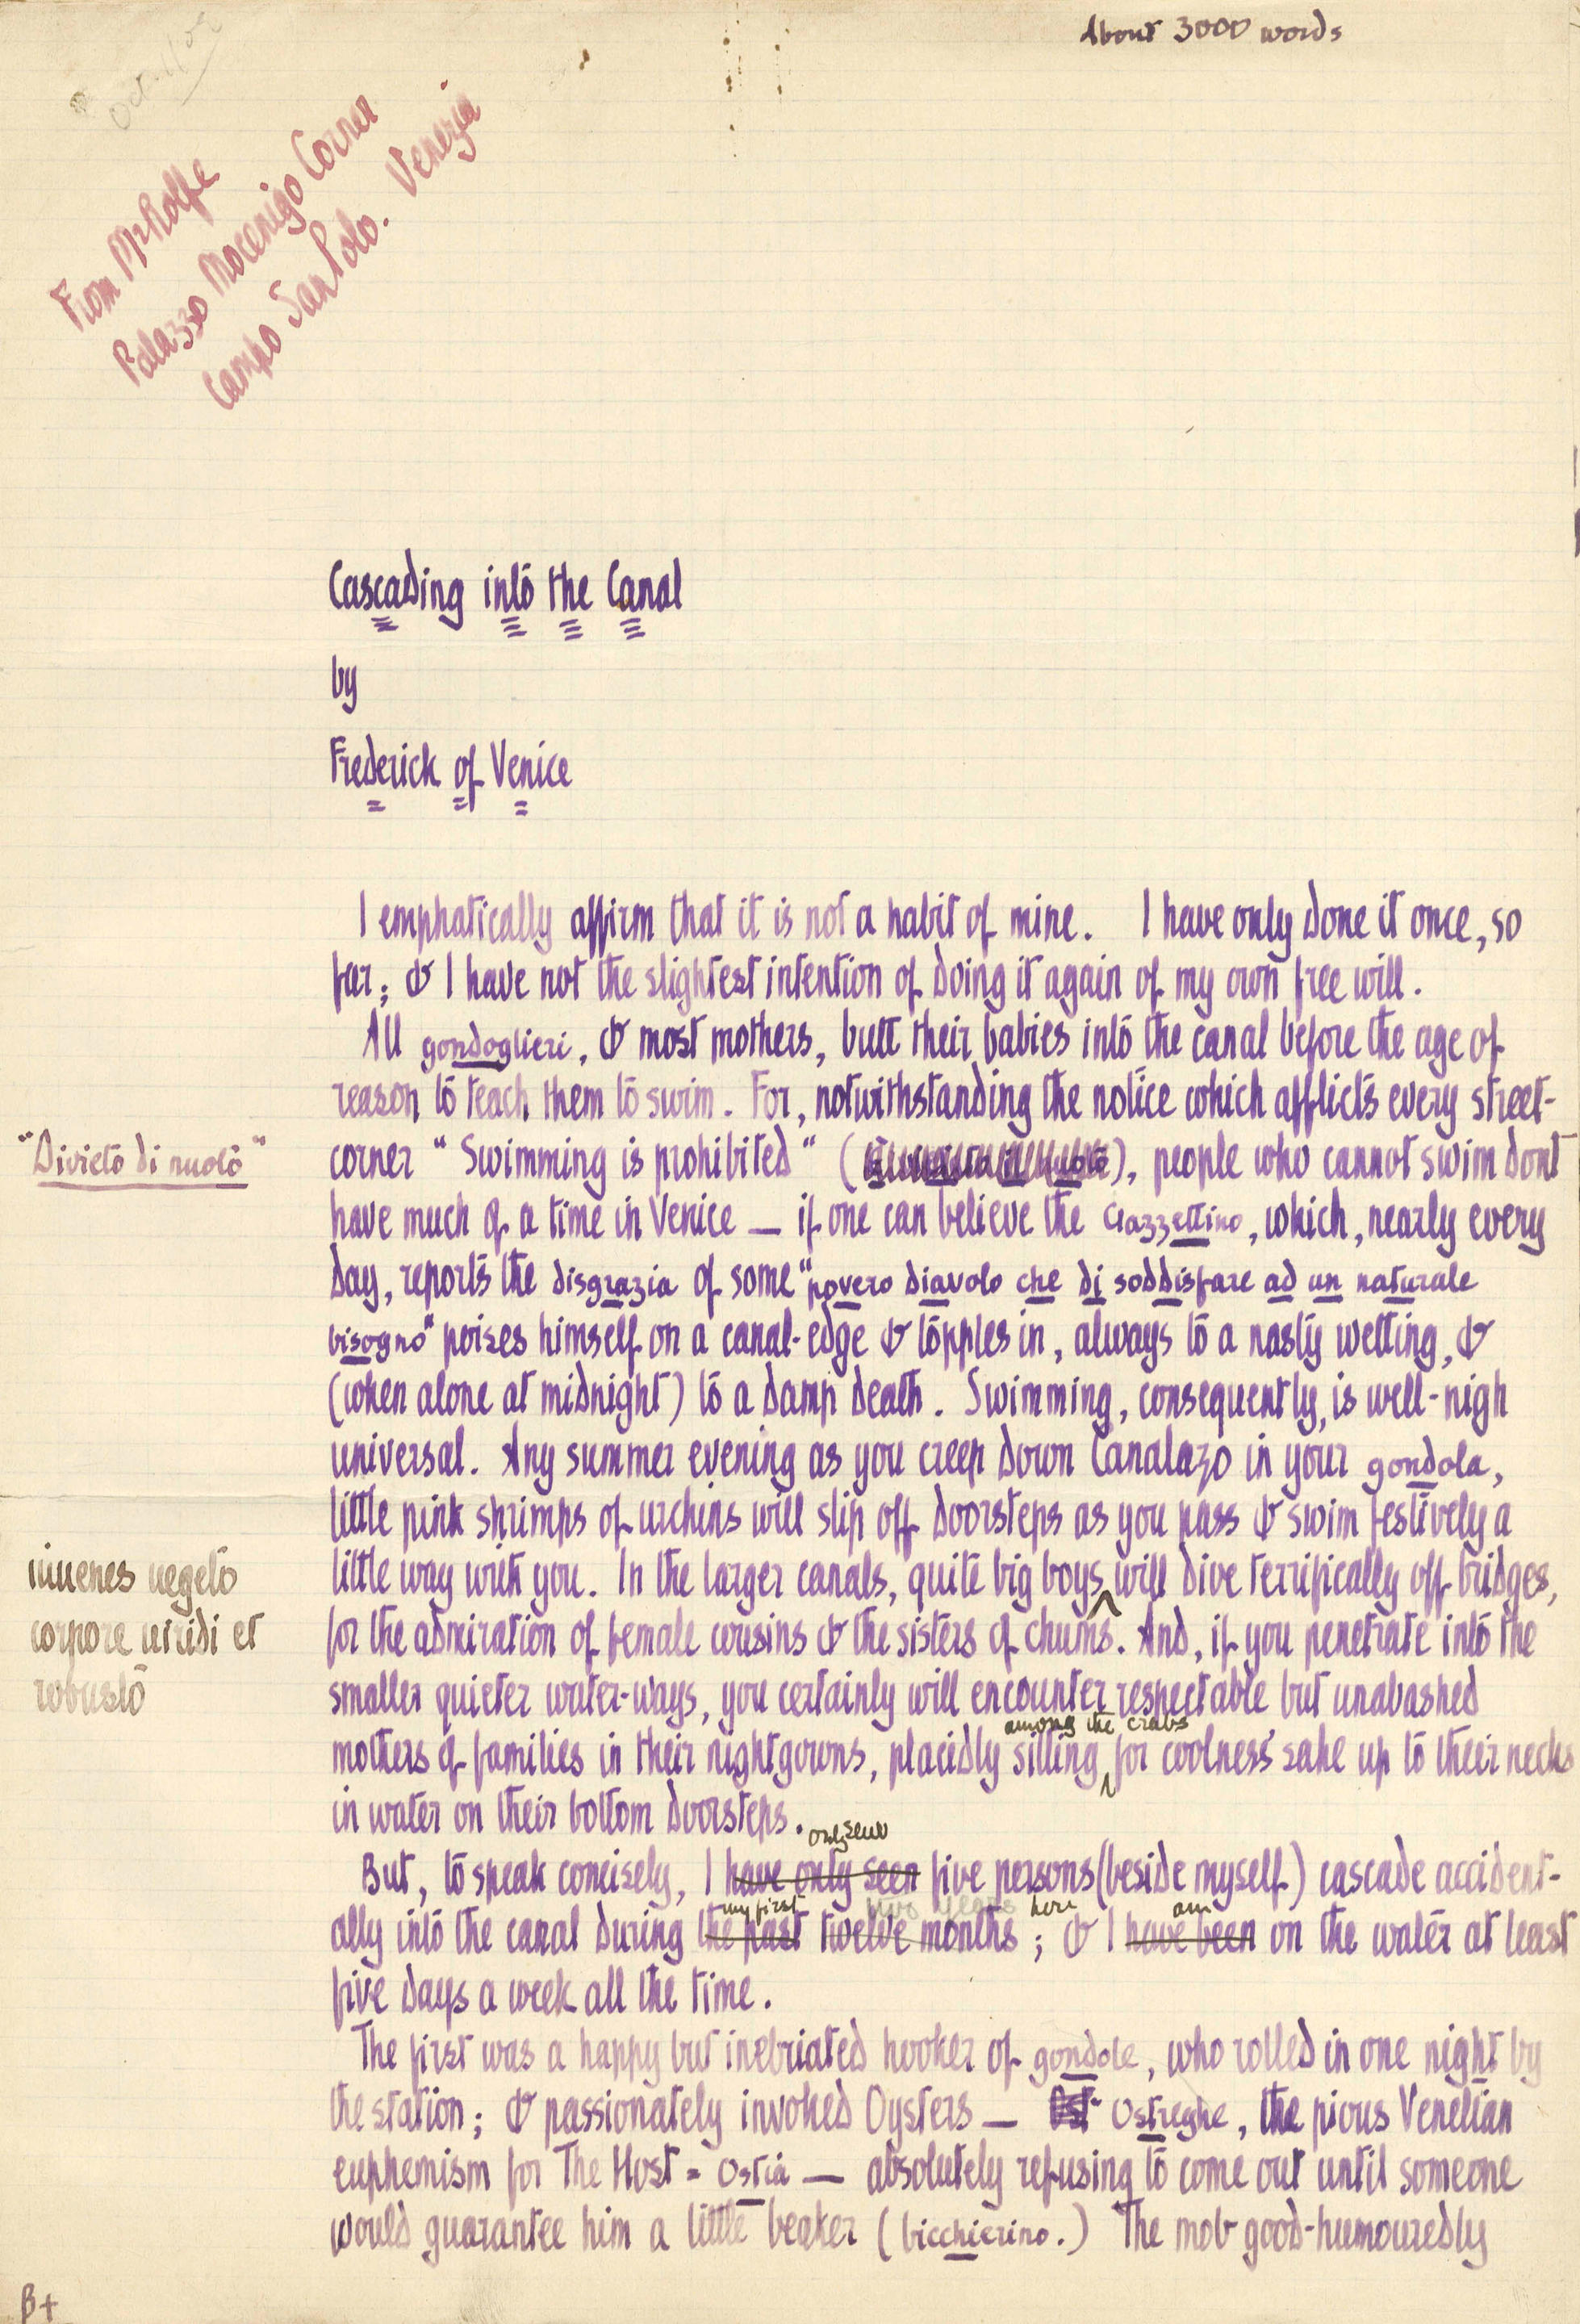 About 3000 words
From Mr Rolfe
Palazzo Mocenigo Corner
Campo San Polo. Venezia
Cascading into the Canal
by
Frederick of Venice
I emphatically affirm that it is not a habit of mine. I have only done it once, so
far; & I have not the slightest intention of doing it again of my own free will.
All gondoglieri, & most mothers, butt their babies into the canal before the age of
reason to teach them to swim. For, notwithstanding the notice which afflicts every street-
"Divieto di nuoto"
corner "Swimming is prohibited" ( ), people who cannot swim dont
have much of a time in Venice — if one can believe the Gazzettino, which, nearly every
day, reports the disgrazia of some "povero diavolo che di soddisfare ad un naturale
bisogno" poises himself on a canal-edge & topples in, always to a nasty wetting, &
(when alone at midnight) to a damp death. Swimming, consequently, is well-nigh
universal. Any summer evening as you creep down Canalazo in your gondola,
little pink shrimps of urchins will slip off doorsteps as you pass & swim festively a
iuuenes uegeto
corpore uiridi et
robusto
little way with you. In the larger canals, quite big boys ^ will dive terrifically off bridges,
for the admiration of female cousins & the sisters of chums. And, if you penetrate into the
smaller quieter water-ways, you certainly will encounter respectable but unabashed
among the crabs
mothers of families in their nightgowns, placidly sitting ^ for coolness' sake up to their necks
in water on their bottom doorsteps.
only seen
But, to speak concisely, I have only seen five persons (beside myself) cascade accident-
my first two years here am
ally into the canal during the past twelve months; & I have been on the water at least
five days a week all the time.
The first was a happy but inebriated hooker of gondole, who rolled in one night by
the station; & passionately invoked Oysters — Ost- Ostreghe, the pious Venetian
euphemism for The Host = Ostia — absolutely refusing to come out until someone
would guarantee him a little beaker (bicchierino.) The mob good-humouredly
B+